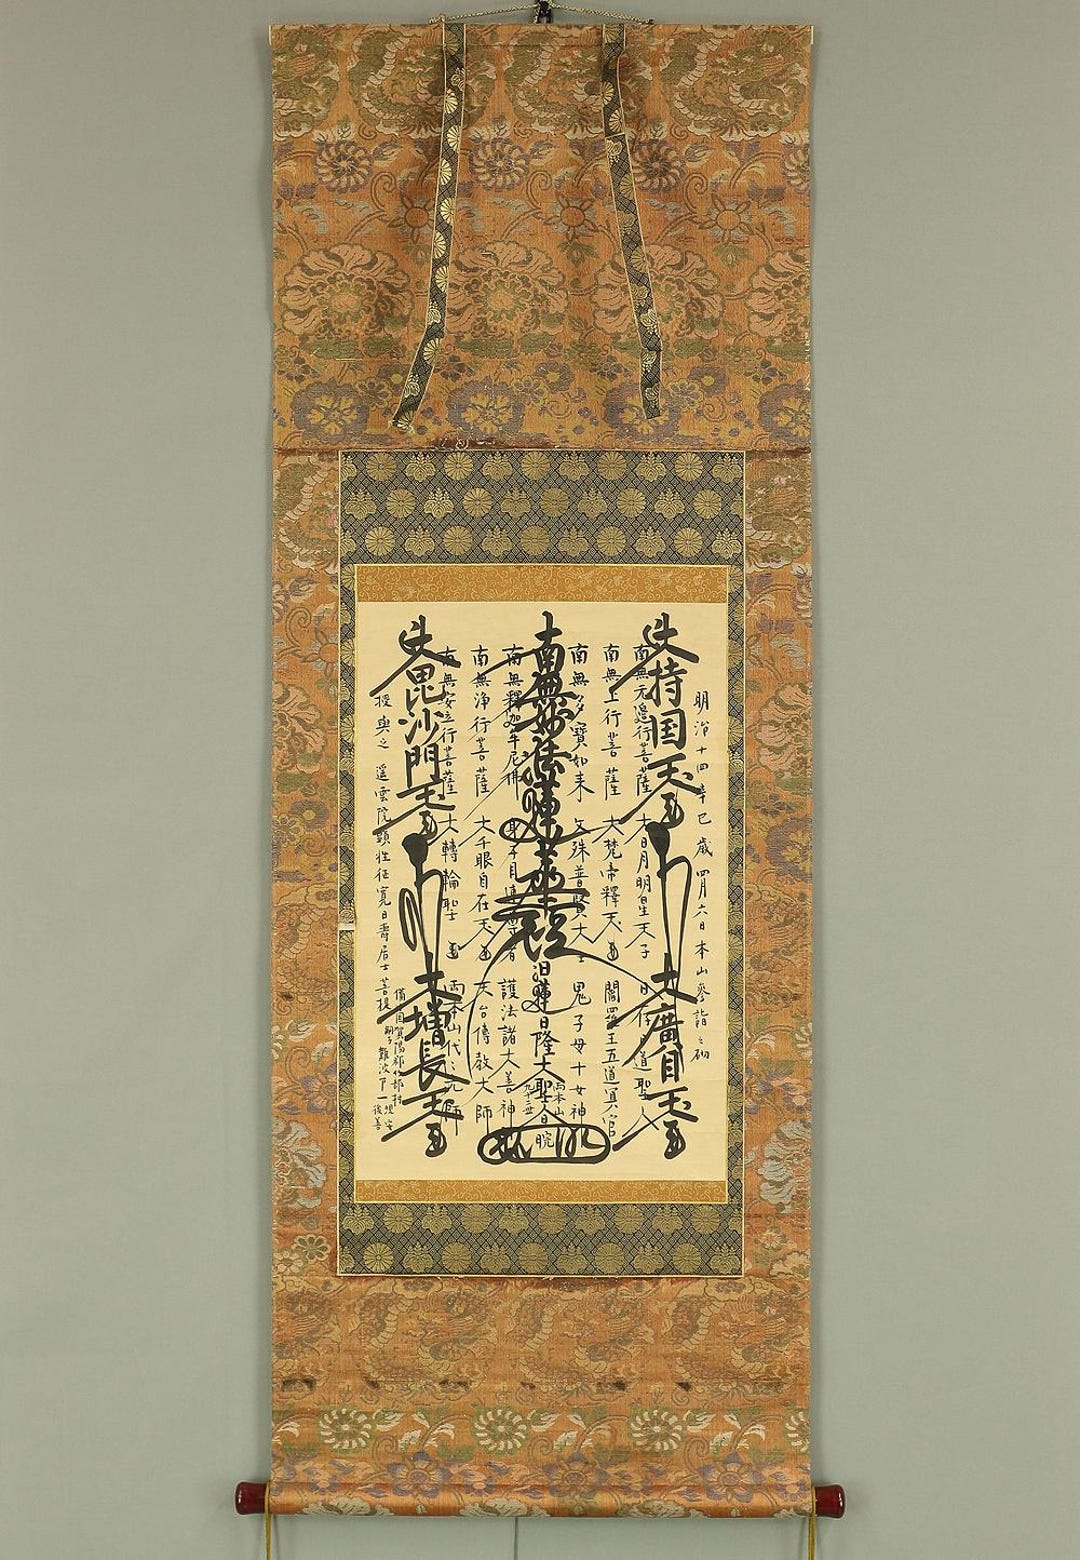 明治十四辛巳歳四月六日本山參詣之砌
大持国天王
大廣目天王
南無无邊行菩薩 大日月明星天子
南無上行菩薩 大梵帝釋天王 閻羅王五道冥官
南無多寶如来 文殊普賢大士 鬼子母十女神
南無妙法蓮華経 日蓮日隆大聖人
両本山
九十二世
日晥
南無釋迦牟尼佛 身子目連 護法諸大善神
南無浄行菩薩 大千眼自在天王 天台傳教大師
南無安立行菩薩 大轉輪聖王 両本山代々元師
大毘沙門天王
大増長天王
授與之 遥雲院顯性征寛日壽居士菩提
備
賀陽郡
難波
後善